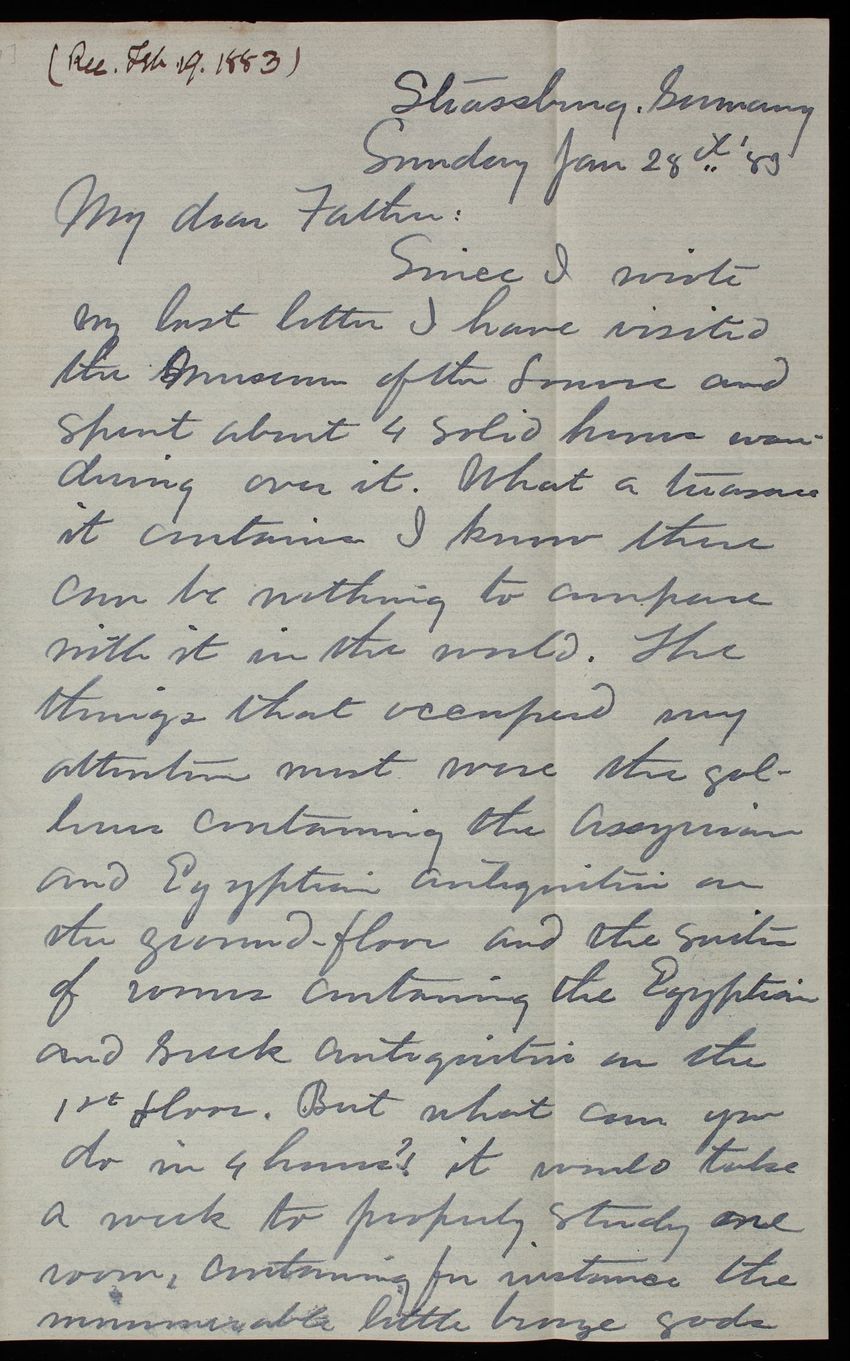 (Rec. Feb. 19. 1883)
Strassburg. Germany
Sunday Jan 28th '83
My dear Father:
Since I wrote
my last letter I have visited
the Museum of the Louvre and
spent about 4 solid hours wan-
dering over it. What a treasure
it contains I know there
can be nothing to compare
with it in the world. The
things that occupied my
attention most were the gal-
leries containing the Assyrian
and Egyptian antiquities on
the ground-floor and the suites
of rooms containing the Egyptian
and Greek antiquities on the
1st floor. But what can you
do in 4 hours? it would take
a week to properly study one
room, containing for instance the
innumerable little bronze gods